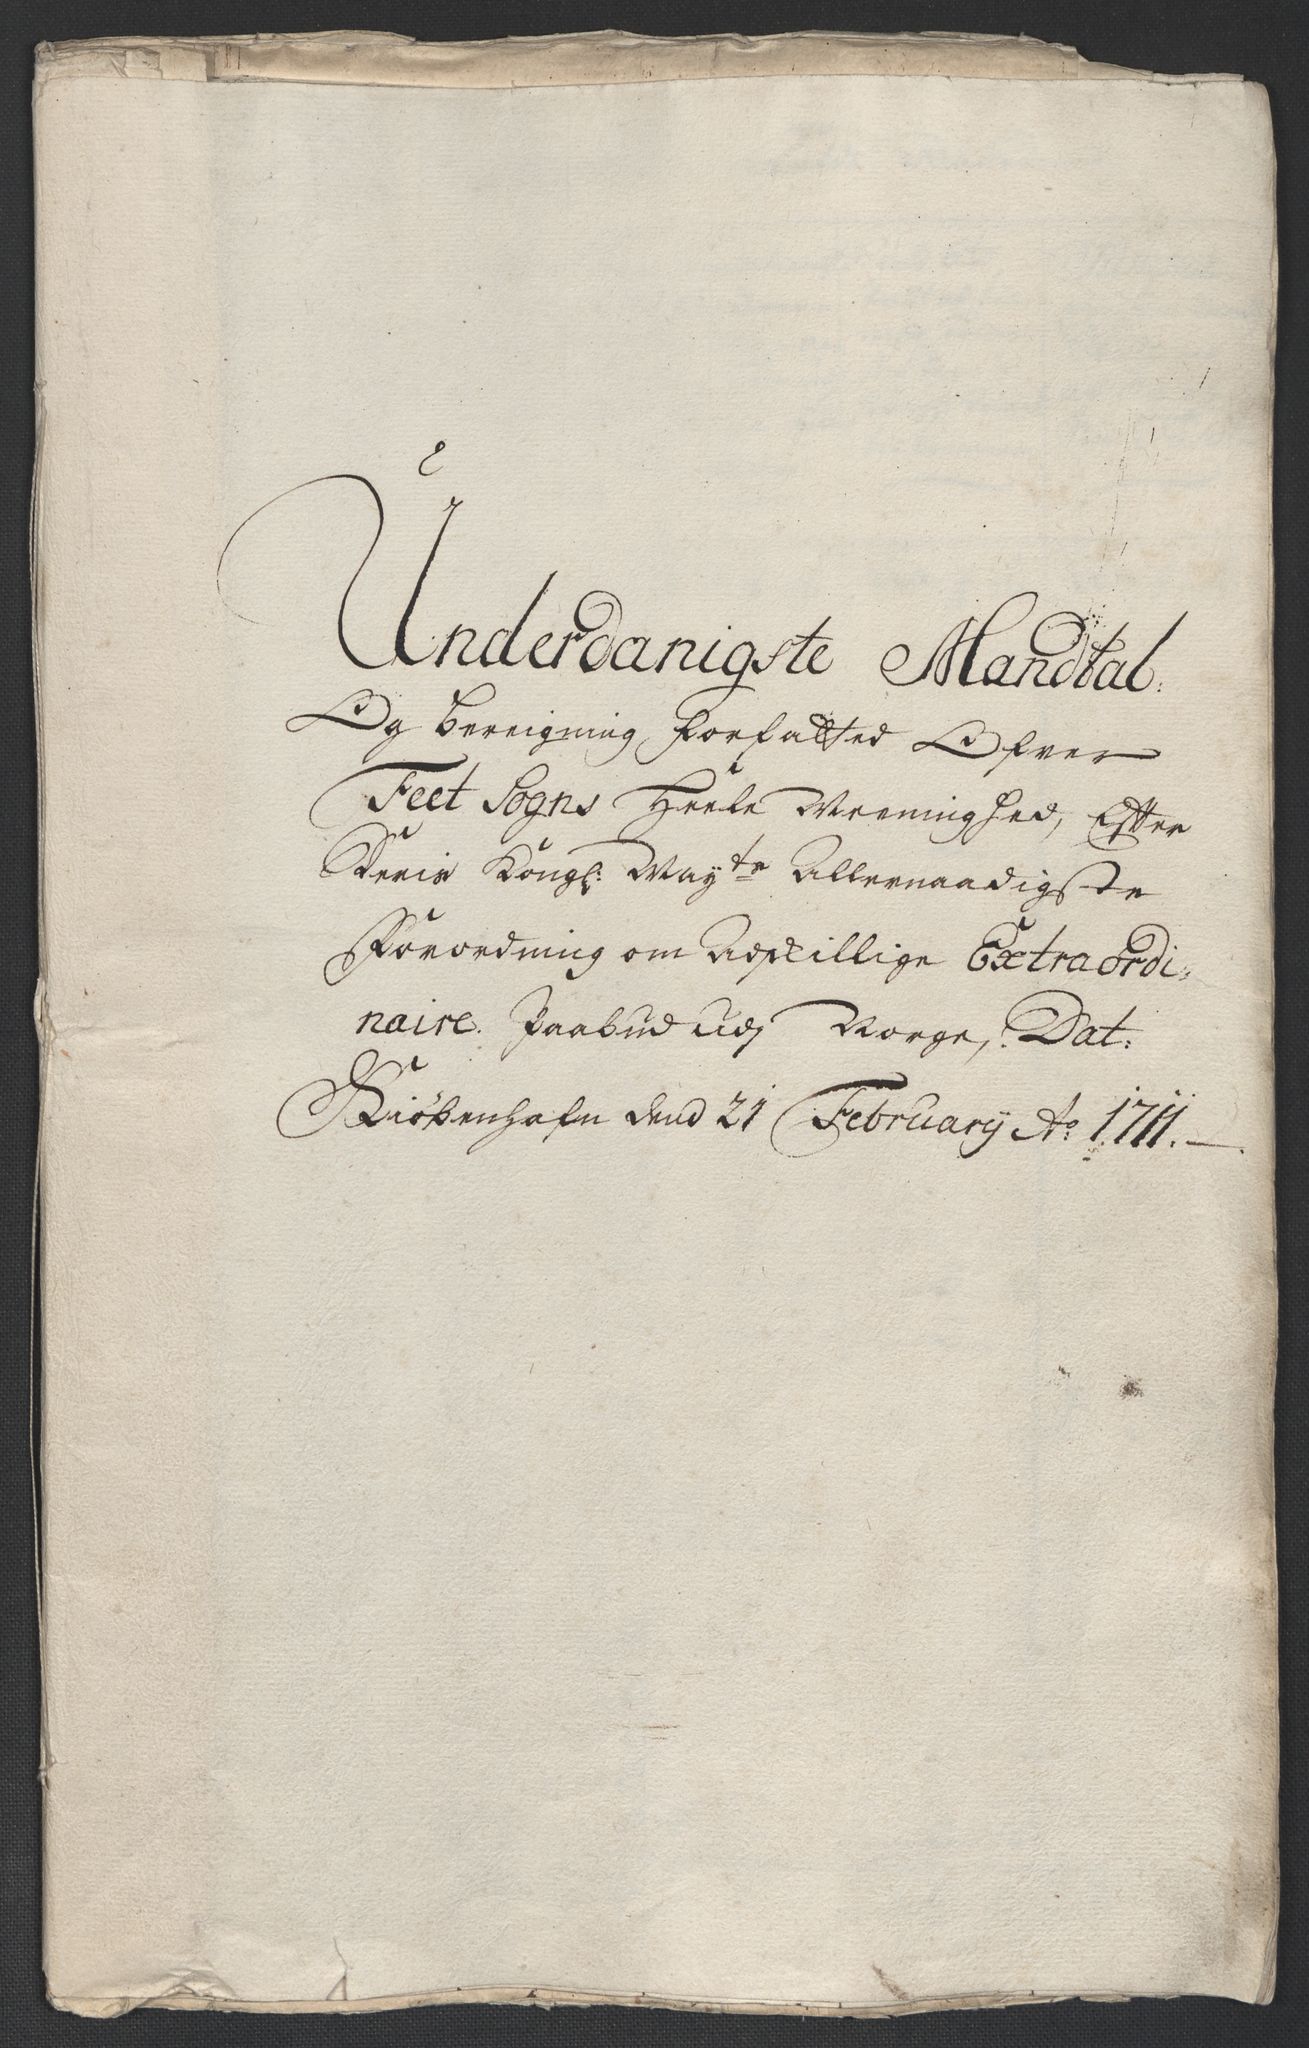 Underdanigste Mandtal.
Og bereigning forfatted Ofver
Feet Sogns Heele Meenighed, Efter
Deris Kongl: May:ts Allernaadigste
Forordning om Adskillige Extraordi-
naire. Paabud udj Norge, Dat:
Kiøbenhafn dend 21 February Ao: 1711.